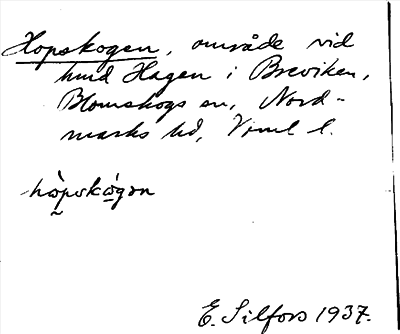 Hopskogen, område vid
hmd Hagen i Breviken,
Blomskogs sn, Nord-
marks hd, Vrml l.
hòpskógən
E. Silfors 1937.